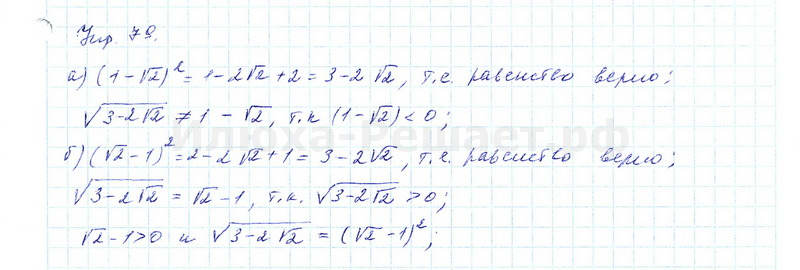 Упр. 79.
а) (1-√2)² = 1-2√2+2 = 3-2√2, т.е. равенство верно;
√(3-2√2) ≠ 1-√2, т.к (1-√2)<0;
Илюха-Решает.рф
б) (√2-1)² = 2-2√2+1 = 3-2√2, т.е. равенство верно;
√(3-2√2) = √2-1, т.к. √(3-2√2) >0;
√2-1>0 и √(3-2√2) = (√2-1)²;